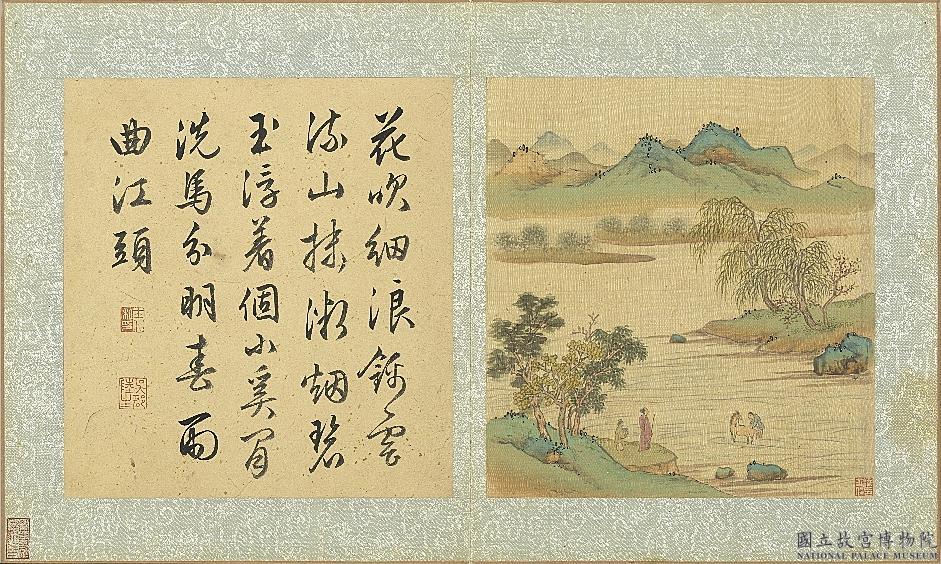 花吹細浪鎔雲
流山抹微烟碧
玉渟着個小奚閒
洗馬分明春雨
曲江頭
國立故宮博物院
NATIONAL PALACE MUSEUM